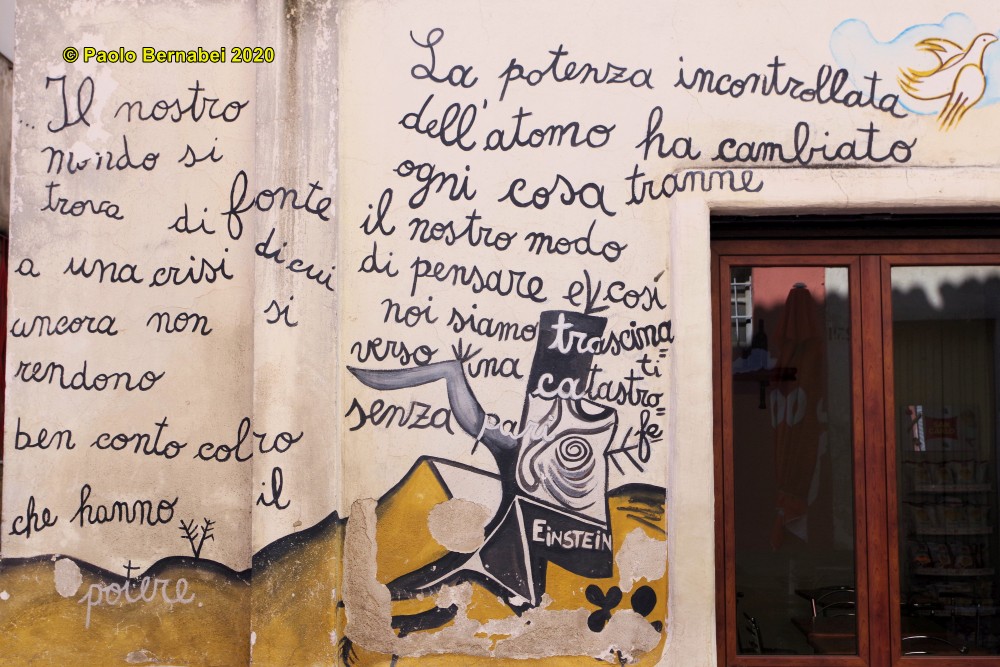 © Paolo Bernabei 2020
..Il nostro
mondo si
trova di fonte
a una crisi di cui
ancora non si
rendono
ben conto colro
che hanno il
potere
La potenza incontrollata
dell'atomo ha cambiato
ogni cosa tranne
il nostro modo
di pensare e così
noi siamo trascina=
ti
verso una catastro=
fe
senza pari
EINSTEIN